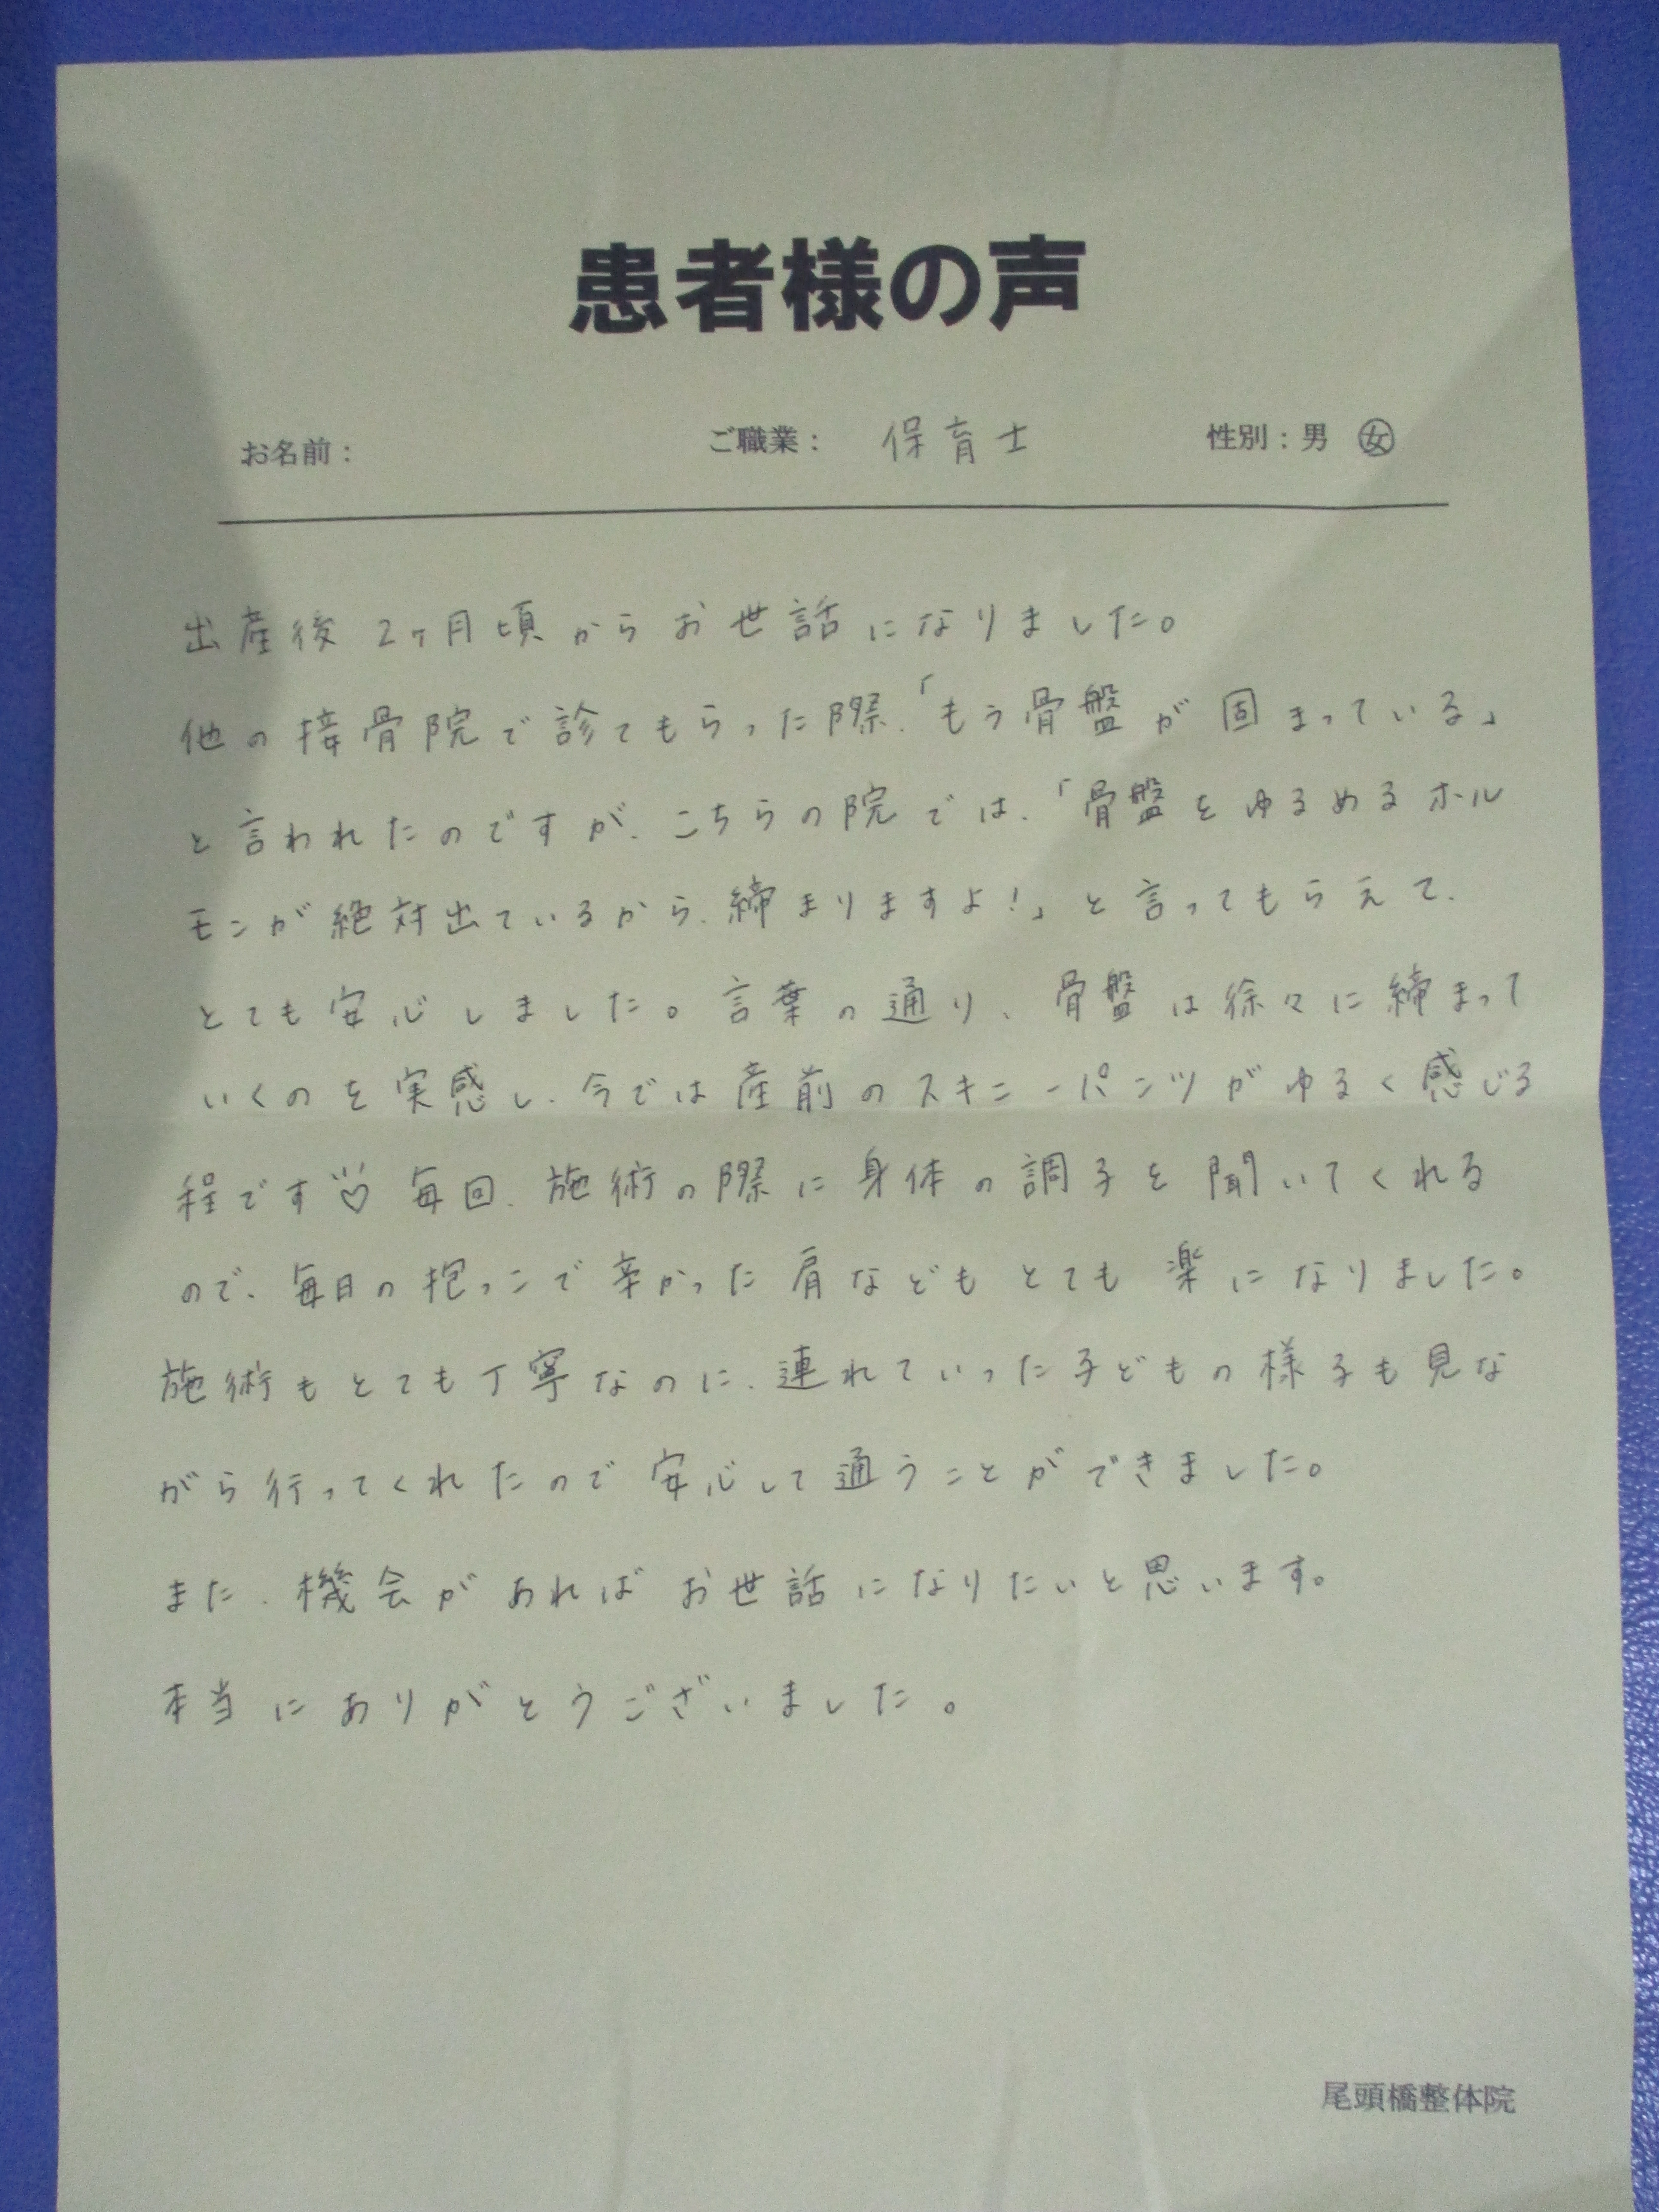 患者様の声
お名前： ご職業： 保育士 性別：男 女
出産後2ヶ月頃からお世話になりました。
他の接骨院で診てもらった際、「もう骨盤が固まっている」
と言われたのですが、こちらの院では、「骨盤をゆるめるホル
モンが絶対出ているから、締まりますよ！」と言ってもらえて、
とても安心しました。言葉の通り、骨盤は徐々に締まって
いくのを実感し、今では産前のスキニーパンツがゆるく感じる
程です♡ 毎回、施術の際に身体の調子を聞いてくれる
ので、毎日の抱っこで辛かった肩などもとても楽になりました。
施術もとても丁寧なのに、連れていった子どもの様子も見な
がら行ってくれたので安心して通うことができました。
また、機会があればお世話になりたいと思います。
本当にありがとうございました。
尾頭橋整体院